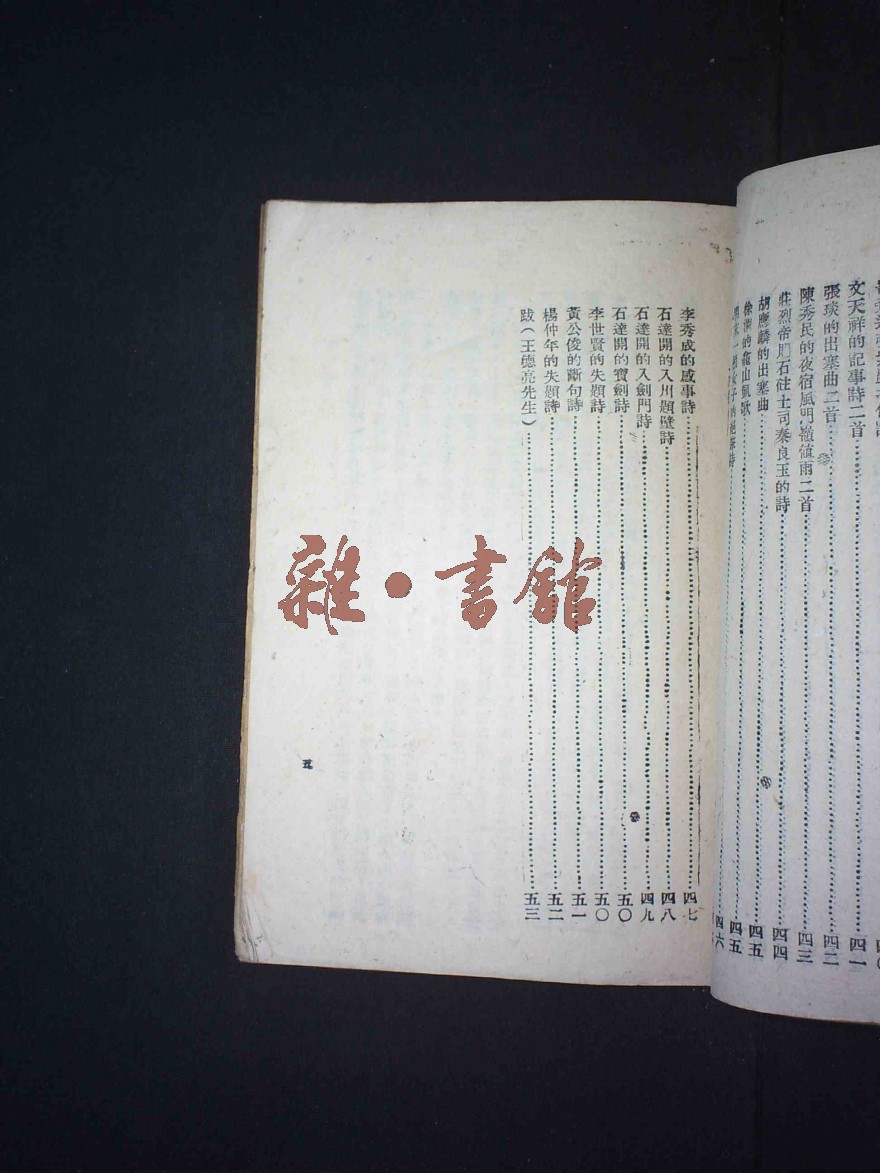 文天祥的記事詩二首 四一
張琰的出塞曲二首 四二
陳秀民的夜宿風門嶺値雨二首 四三
莊烈帝賜石砫土司秦良玉的詩 四四
胡應麟的出塞曲 四五
徐渭的龕山凱歌 四五
四六
李秀成的感事詩 四七
石達開的入川題壁詩 四八
石達開的入劍門詩 四九
石達開的寶劍詩 五〇
李世賢的失題詩 五〇
黃公俊的斷句詩 五一
楊仲年的失題詩 五二
跋(王德亮先生) 五三
五
雜·書館